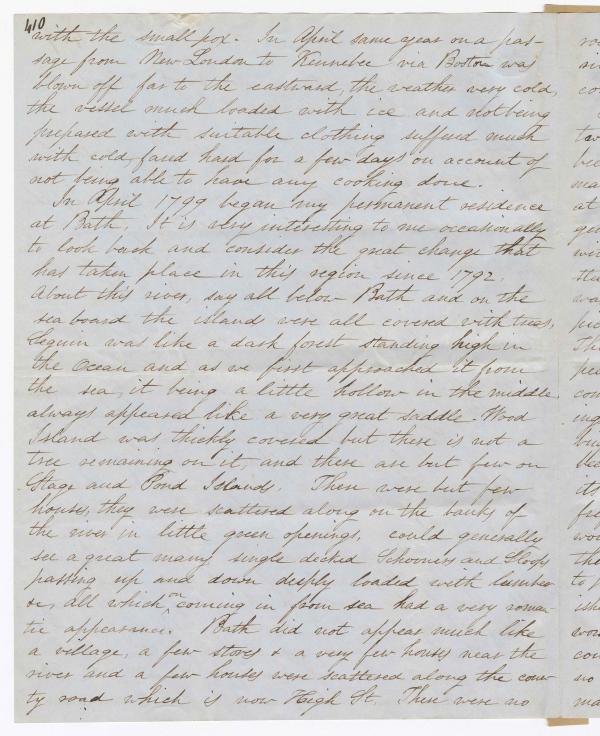 410
with the small pox. In April same year on a pas-
sage from New London to Kennebec via Boston was
blown off far to the eastward, the weather very cold,
the vessel much loaded with ice and not being
prepared with suitable clothing suffered much
with cold, fared hard for a few days on account of
not being able to have any cooking done.
In April 1799 began my permanent residence
at Bath. It is very interesting to me occasionally
to look back and consider the great change that
has taken place in this region since 1792.
About this river, say all below Bath and on the
sea board the islands were all covered with trees,
Seguin was like a dark forest standing high in
the Ocean and as we first approached it from
the sea, it being a little hollow in the middle,
always appeared like a very great saddle. Wood
Island was thickly covered but there is not a
tree remaining on it, and there are but few on
Stage and Pond Islands. There were but few
houses, they were scattered along on the banks of
the river in little green openings, could generally
see a great many single decked Schooners and Sloops
passing up and down deeply loaded with lumber
&c, all which on coming in from sea had a very roman-
tic appearance. Bath did not appear much like
a village, a few stores & a very few houses near the
river and a few houses were scattered along the coun-
ty road which is now High St. There were no